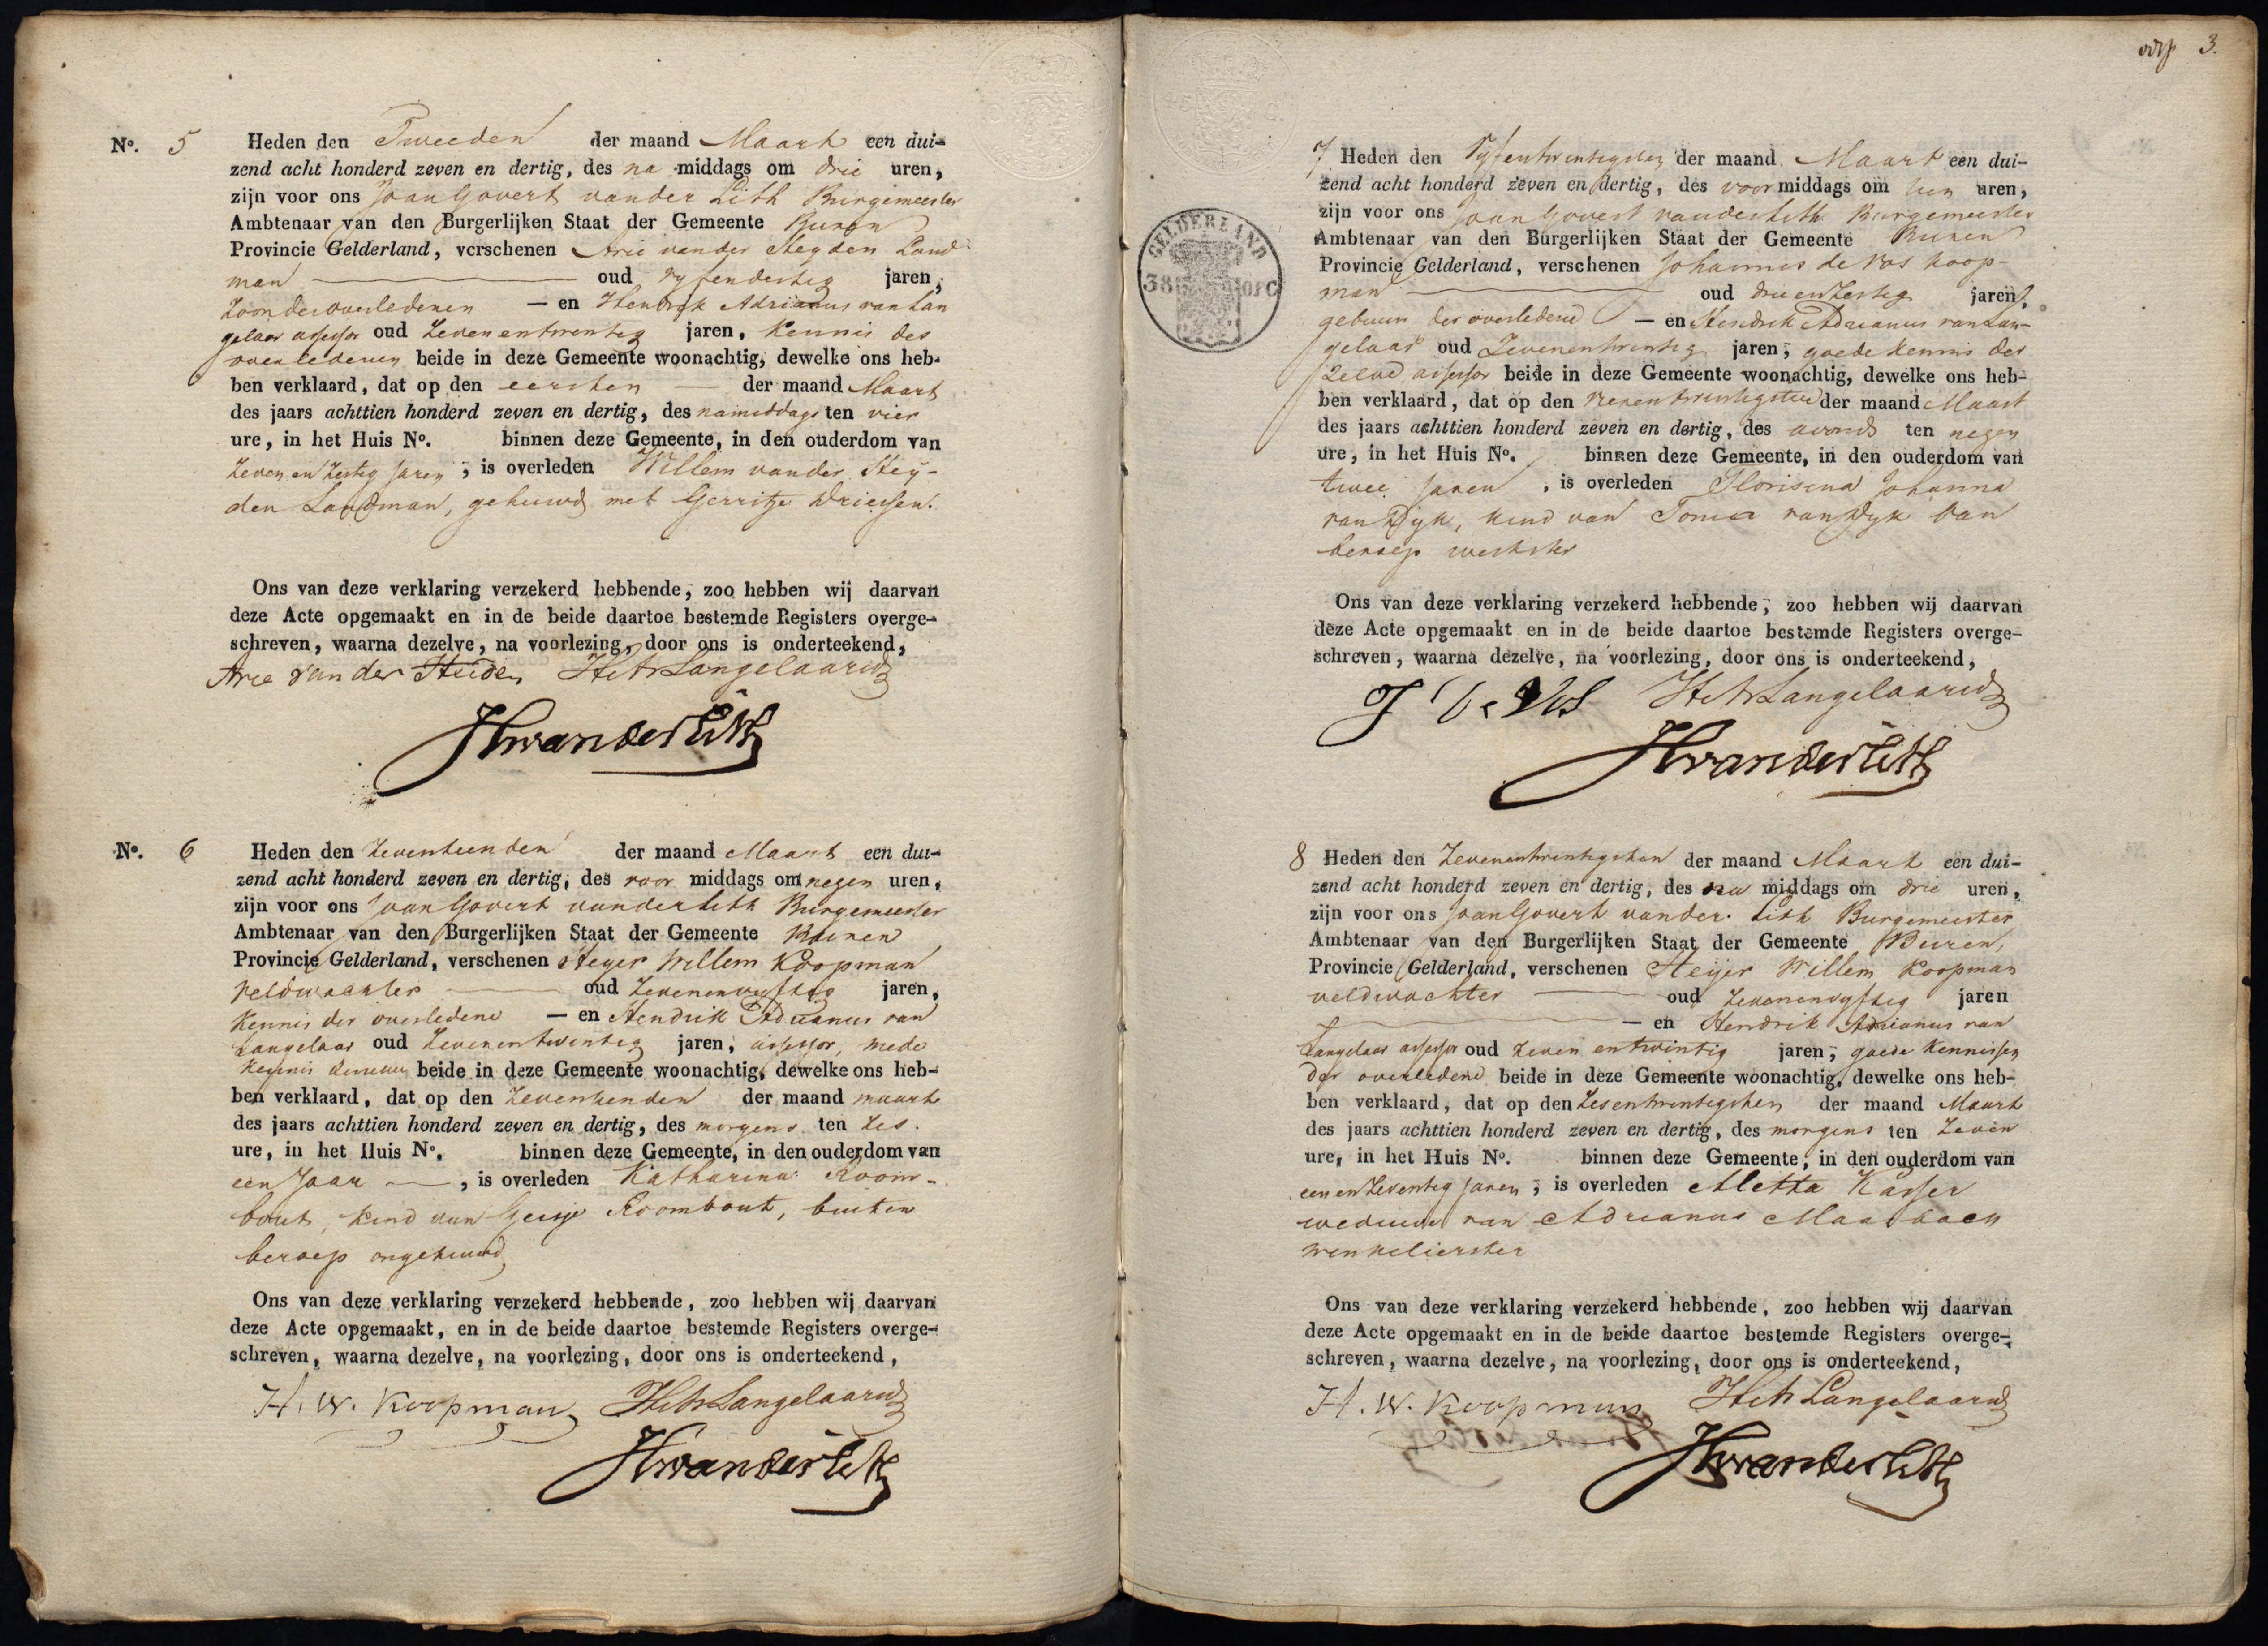 N°. 5 Heden den Tweeden der maand Maart een dui-
zend acht honderd zeven en dertig, des na middags om drie uren,
zijn voor ons Joan Govert vander Lith Burgemeester
Ambtenaar van den Burgerlijken Staat der Gemeente Buren
Provincie Gelderland, verschenen Arie vander Heyden Land
man oud vyfendertig jaren,
Zoon des overledenen — en Hendrik Adrianus van Lan
gelaar assessor oud Zevenentwentig jaren, Kennis des
overledenen beide in deze Gemeente woonachtig, dewelke ons heb-
ben verklaard, dat op den eersten — der maand Maart
des jaars achttien honderd zeven en dertig, des namiddags ten vier
ure, in het Huis N°. binnen deze Gemeente, in den ouderdom van
Zeven en Zestig Jaren, is overleden Willem vander Hey-
den Landman, gehuwd met Gerritje Driessen.
Ons van deze verklaring verzekerd hebbende, zoo hebben wij daarvan
deze Acte opgemaakt en in de beide daartoe bestemde Registers overge-
schreven, waarna dezelve, na voorlezing, door ons is onderteekend,
Arie van der Heiden HAvLangelaar
JGvanderLith
N°. 6 Heden den Zeventeenden der maand Maart een dui-
zend acht honderd zeven en dertig, des voor middags om negen uren,
zijn voor ons Joan Govert vander Lith Burgemeester
Ambtenaar van den Burgerlijken Staat der Gemeente Buren
Provincie Gelderland, verschenen Heyer Willem Koopman
Veldwachter — oud Zevenenvyftig jaren,
Kennis der overledene — en Hendrik Adrianus van
Langelaar oud Zevenentwentig jaren, assessor, mede
Kennis beide in deze Gemeente woonachtig, dewelke ons heb-
ben verklaard, dat op den Zeventienden der maand maart
des jaars achttien honderd zeven en dertig, des morgens ten Zes
ure, in het Huis N°. binnen deze Gemeente, in den ouderdom van
een Jaar —, is overleden Katharina Room-
bout, Kind van Geisje Roombout, buiten
beroep ongehuwd
Ons van deze verklaring verzekerd hebbende, zoo hebben wij daarvan
deze Acte opgemaakt, en in de beide daartoe bestemde Registers overge-
schreven, waarna dezelve, na voorlezing, door ons is onderteekend,
H. W. Koopman HAvLangelaar
JGvanderLith
3.
GELDERLAND
38
7 Heden den Vyfentwentigsten der maand Maart een dui-
zend acht honderd zeven en dertig, des voor middags om tien uren,
zijn voor ons Joan Govert vanderLith Burgemeester
Ambtenaar van den Burgerlijken Staat der Gemeente Buren
Provincie Gelderland, verschenen Johannes de Vos Koop-
man — oud drie en Zestig jaren,
gebuur der overledene — en Hendrik Adrianus van Lan-
gelaar oud Zevenentwentig jaren, goede kennis der
Zelve, assessor beide in deze Gemeente woonachtig, dewelke ons heb-
ben verklaard, dat op den der maand Maart
des jaars achttien honderd zeven en dertig, des avonds ten negen
ure, in het Huis N°. binnen deze Gemeente, in den ouderdom van
twee Jaren, is overleden Florisina Johanna
van Dyk, kind van Tonia van Dyk van
beroep werkster
Ons van deze verklaring verzekerd hebbende, zoo hebben wij daarvan
deze Acte opgemaakt en in de beide daartoe bestemde Registers overge-
schreven, waarna dezelve, na voorlezing, door ons is onderteekend,
J De VoS HAvLangelaar
JGvanderLith
8 Heden den Zevenentwentigsten der maand Maart een dui-
zend acht honderd zeven en dertig, des na middags om drie uren,
zijn voor ons Joan Govert vander Lith Burgemeester
Ambtenaar van den Burgerlijken Staat der Gemeente Buren,
Provincie Gelderland, verschenen Heyer Willem Koopman
veldwachter — oud Zevenenvyftig jaren
— en Hendrik Adrianus van
Langelaar assessor oud Zeven entwintig jaren, goede Kennissen
der overledene beide in deze Gemeente woonachtig, dewelke ons heb-
ben verklaard, dat op den Zesentwentigsten der maand Maart
des jaars achttien honderd zeven en dertig, des morgens ten Zeven
ure, in het Huis N°. binnen deze Gemeente, in den ouderdom van
een en Zeventig Jaren, is overleden Aletta Kasser
weduwe van Adrianus Maasbacy
winkelierster
Ons van deze verklaring verzekerd hebbende, zoo hebben wij daarvan
deze Acte opgemaakt en in de beide daartoe bestemde Registers overge-
schreven, waarna dezelve, na voorlezing, door ons is onderteekend,
H. W. Koopman HAvLangelaar
JGvanderLith